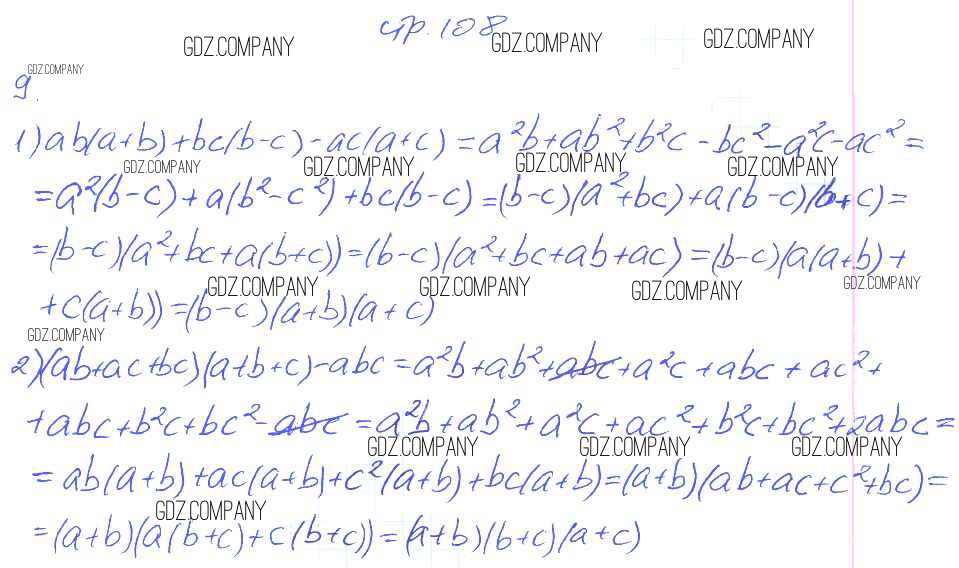 стр. 108
GDZ.COMPANY GDZ.COMPANY GDZ.COMPANY
GDZ.COMPANY
9.
1) ab(a+b)+bc(b-c)-ac(a+c) = a²b+ab²+b²c-bc²-a²c-ac² =
GDZ.COMPANY GDZ.COMPANY GDZ.COMPANY GDZ.COMPANY
=a²(b-c)+a(b²-c²)+bc(b-c)=(b-c)(a²+bc)+a(b-c)(b+c)=
=(b-c)(a²+bc+a(b+c))=(b-c)(a²+bc+ab+ac)=(b-c)(a(a+b)+
GDZ.COMPANY GDZ.COMPANY GDZ.COMPANY GDZ.COMPANY
+c(a+b))=(b-c)(a+b)(a+c)
GDZ.COMPANY
2)(ab+ac+bc)(a+b+c)-abc=a²b+ab²+abc+a²c+abc+ac²+
+abc+b²c+bc²-abc=a²b+ab²+a²c+ac²+b²c+bc²+2abc=
GDZ.COMPANY GDZ.COMPANY GDZ.COMPANY
=ab(a+b)+ac(a+b)+c²(a+b)+bc(a+b)=(a+b)(ab+ac+c²+bc)=
GDZ.COMPANY
=(a+b)(a(b+c)+c(b+c))=(a+b)(b+c)(a+c)